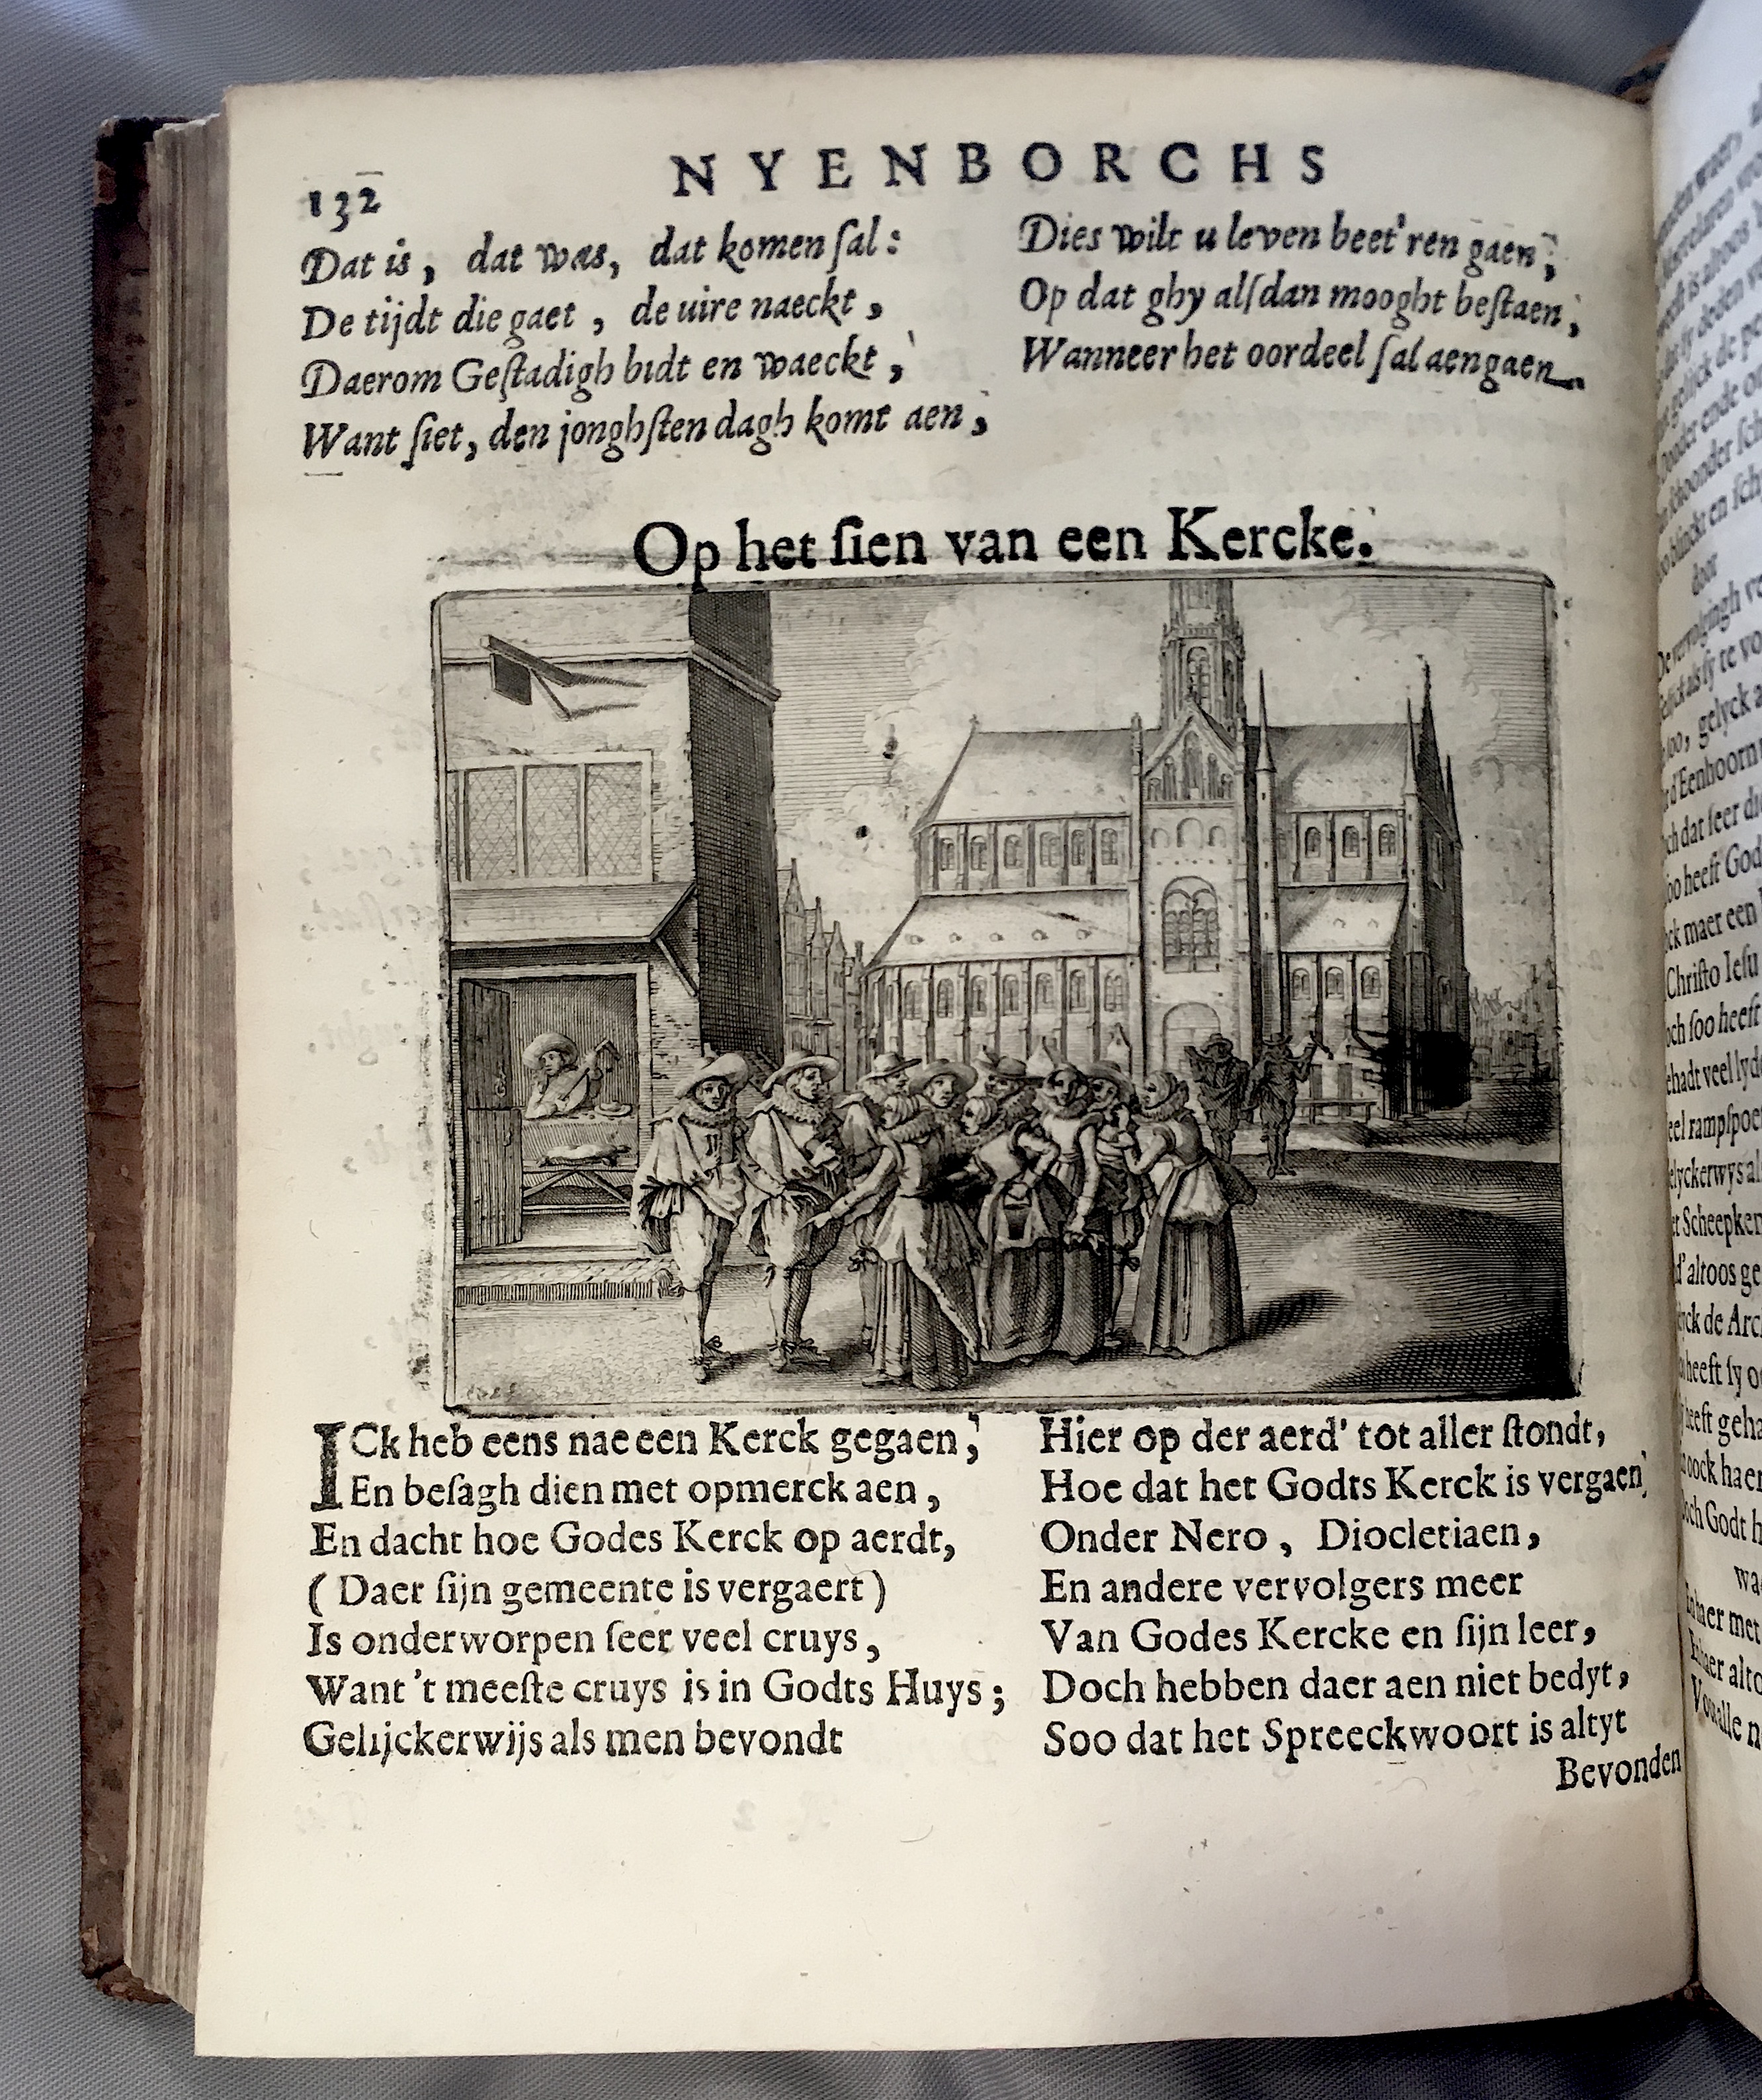 132
NYENBORCHS
Dat is, dat was, dat komen ſal:
De tijdt die gaet, de uire naeckt,
Daerom Geſtadigh bidt en waeckt,
Want ſiet, den jonghſten dagh komt aen,
Dies wilt u leven beet'ren gaen,
Op dat ghy alſdan mooght beſtaen,
Wanneer het oordeel ſal aengaen.
Op het ſien van een Kercke.
ICk heb eens nae een Kerck gegaen,
En beſagh dien met opmerck aen,
En dacht hoe Godes Kerck op aerdt,
(Daer ſijn gemeente is vergaert)
Is onderworpen ſeer veel cruys,
Want 't meeſte cruys is in Godts Huys;
Gelijckerwijs als men bevondt
Hier op der aerd' tot aller ſtondt,
Hoe dat het Godts Kerck is vergaen,
Onder Nero, Diocletiaen,
En andere vervolgers meer
Van Godes Kercke en ſijn leer,
Doch hebben daer aen niet bedyt,
Soo dat het Spreeckwoort is altyt
Bevonden
door
De vervolgingh
gelyck
d'Eenhoorn
och dat ſeer
ſoo heeft God
maer een
Chriſto Ieſu
och ſoo heeft
veel
Scheepken
altoos
de Arc
heeft ſy
heeft
oock haer
Doch Godt
met
alle